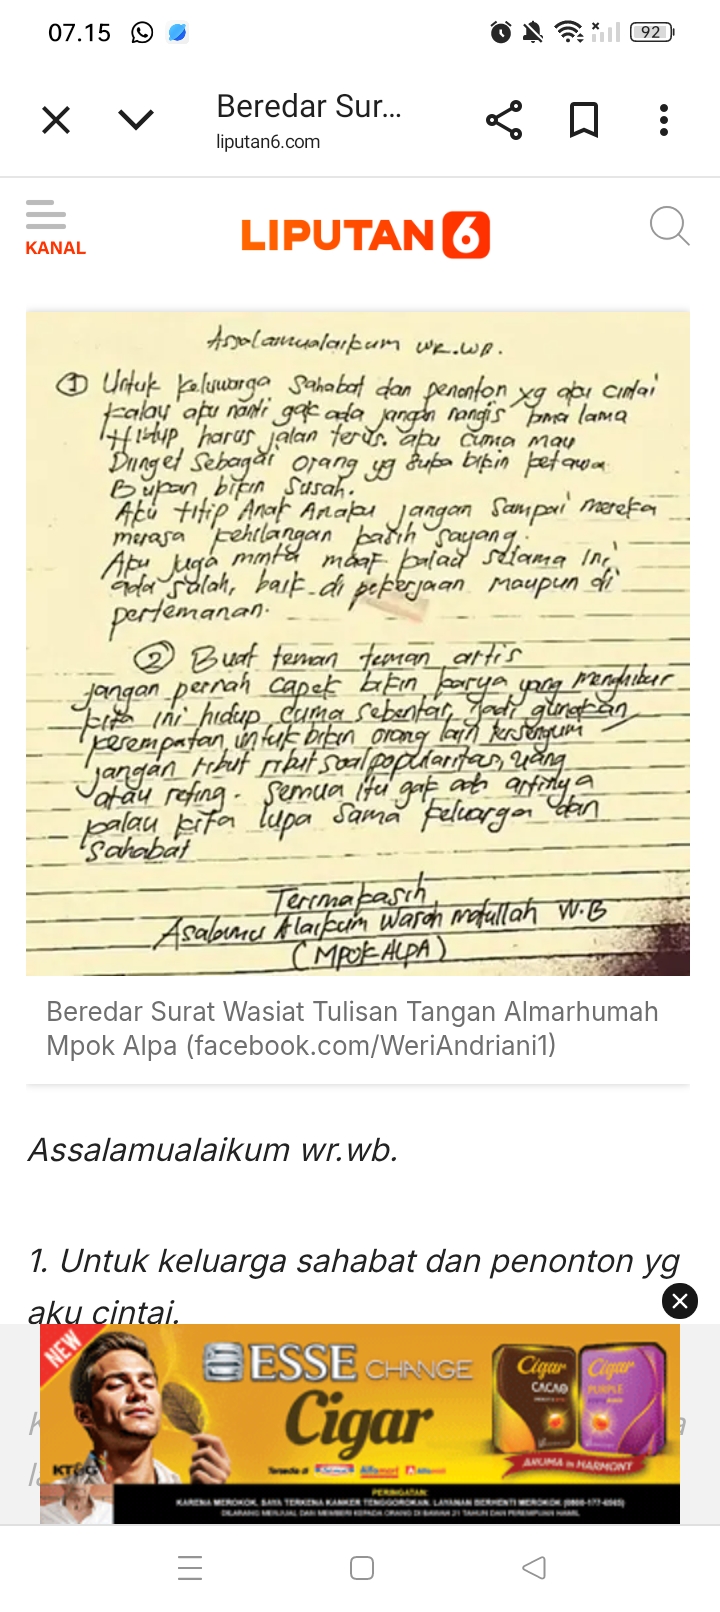 07.15
92
Beredar Sur...
liputan6.com
KANAL
LIPUTAN 6
Assalamualaikum wr.wb.
1 Untuk keluwarga Sahabat dan penonton yg aku cintai
kalau aku nanti gak ada jangan nangis lama lama
Hidup harus jalan terus. aku cuma mau
Diinget Sebagai orang yg suka bikin ketawa
Bukan bikin susah.
Aku titip Anak Anakku jangan Sampai mereka
merasa kehilangan kasih sayang.
Aku juga minta maaf kalau selama ini
ada salah, baik di pekerjaan maupun di
pertemanan.
2 Buat teman teman artis
jangan pernah capek bikin karya yang menghibur
kita ini hidup cuma sebentar, jadi gunakan
kesempatan untuk bikin orang lain tersenyum
jangan ribut ribut soal popularitas, uang
atau reting. Semua itu gak ada artinya
kalau kita lupa sama keluarga dan
Sahabat
Terimakasih
Asalamu Alaikum Warah matullah W.B
(MPOK ALPA)
Beredar Surat Wasiat Tulisan Tangan Almarhumah
Mpok Alpa (facebook.com/WeriAndriani1)
Assalamualaikum wr.wb.
1. Untuk keluarga sahabat dan penonton yg
aku cintai.
NEW
ESSE CHANGE
Cigar
Cigar
CACAO
Cigar
PURPLE
AROMA in HARMONY
KT&G
Tersedia di
Alfamart
PERINGATAN:
KARENA MEROKOK, SAYA TERKENA KANKER TENGGOROKAN. LAYANAN BERHENTI MEROKOK (0800-177-6565)
DILARANG MENJUAL DAN MEMBERI KEPADA ORANG DI BAWAH 21 TAHUN DAN PEREMPUAN HAMIL